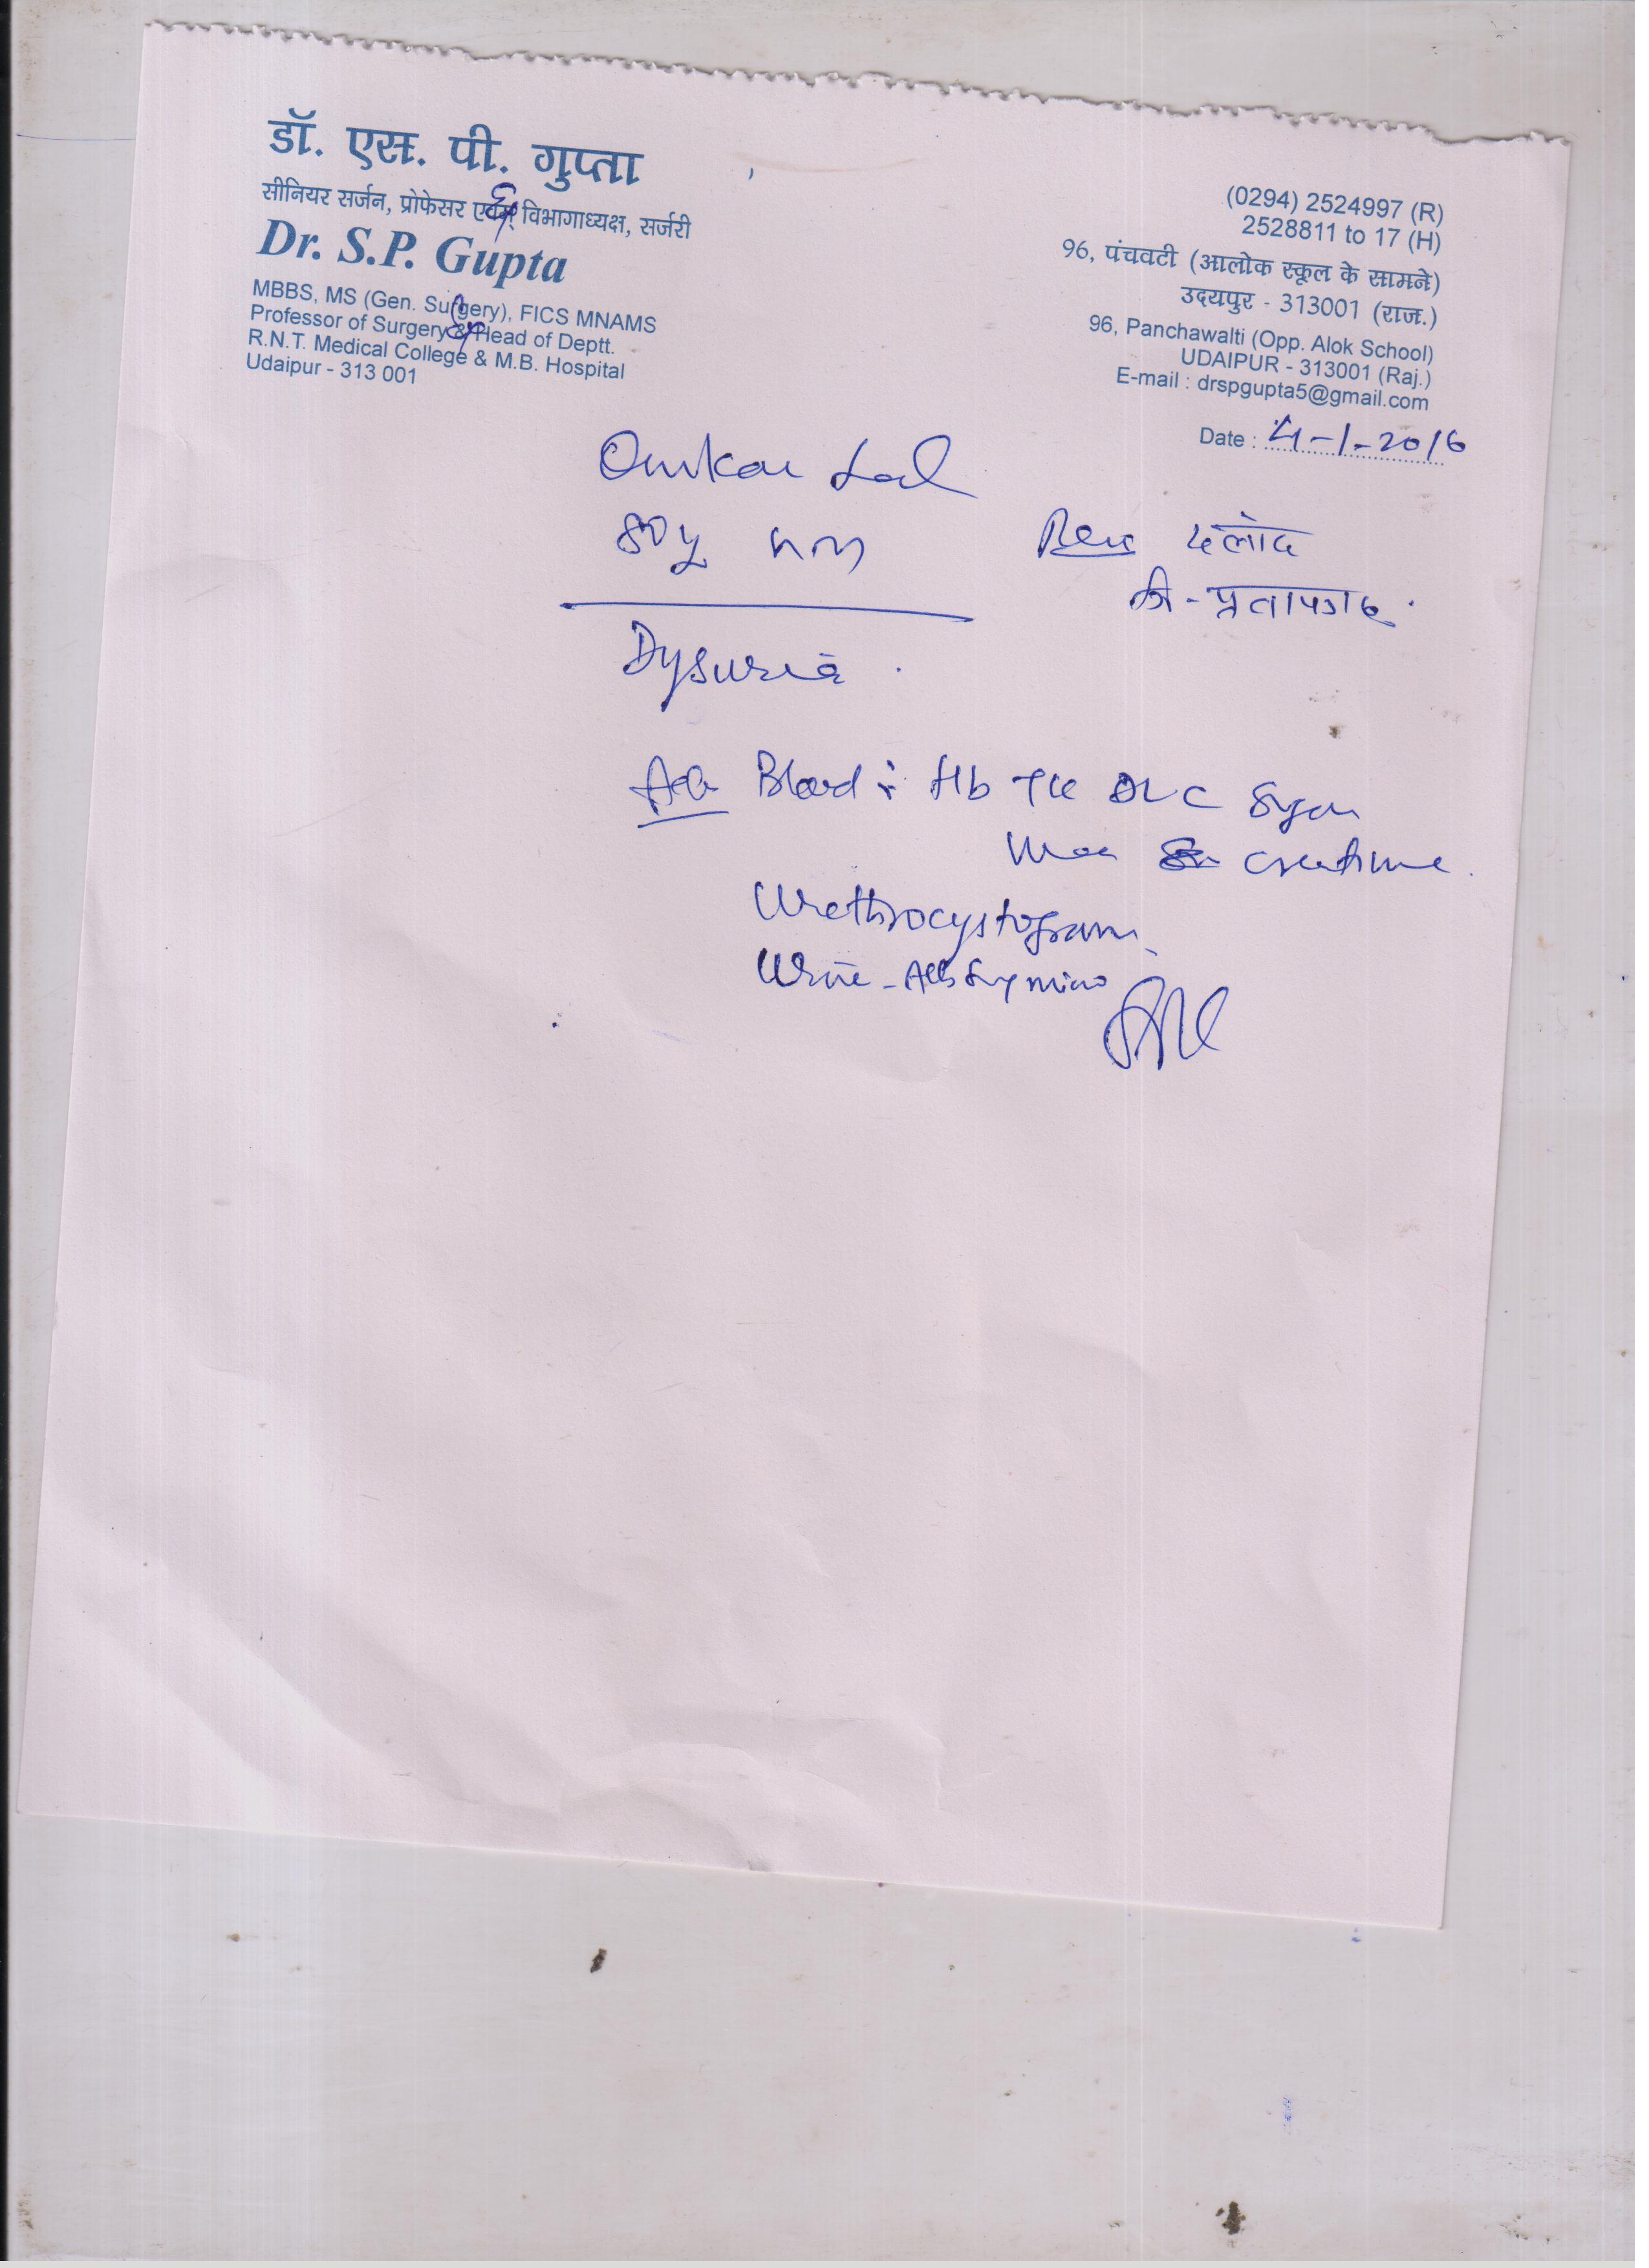 डॉ. एस. पी. गुप्ता
सीनियर सर्जन, प्रोफेसर एवम् विभागाध्यक्ष, सर्जरी
Dr. S.P. Gupta
MBBS, MS (Gen. Surgery), FICS MNAMS
Professor of Surgery & Head of Deptt.
R.N.T. Medical College & M.B. Hospital
Udaipur - 313 001
(0294) 2524997 (R)
2528811 to 17 (H)
96, पंचवटी (आलोक स्कूल के सामने)
उदयपुर - 313001 (राज.)
96, Panchawalti (Opp. Alok School)
UDAIPUR - 313001 (Raj.)
E-mail : drspgupta5@gmail.com
Date : 4-1-2016
Omkar Lal
80y
दलोद
जि - प्रतापगढ़
Dysuria
Blood : Hb TLC DLC Sugar
Urea Creatinine
Urethrocystogram
Urine - Alb Sug micro